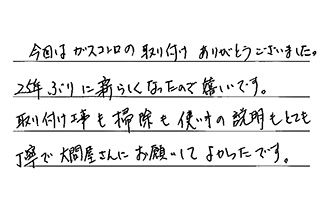 今回は ガスコンロの 取り付け ありがとうございました。
25年ぶりに新らしくなったので嬉しいです。
取り付け工事も掃除も使い方の説明もとても
丁寧で大問屋さんにお願いしてよかったです。